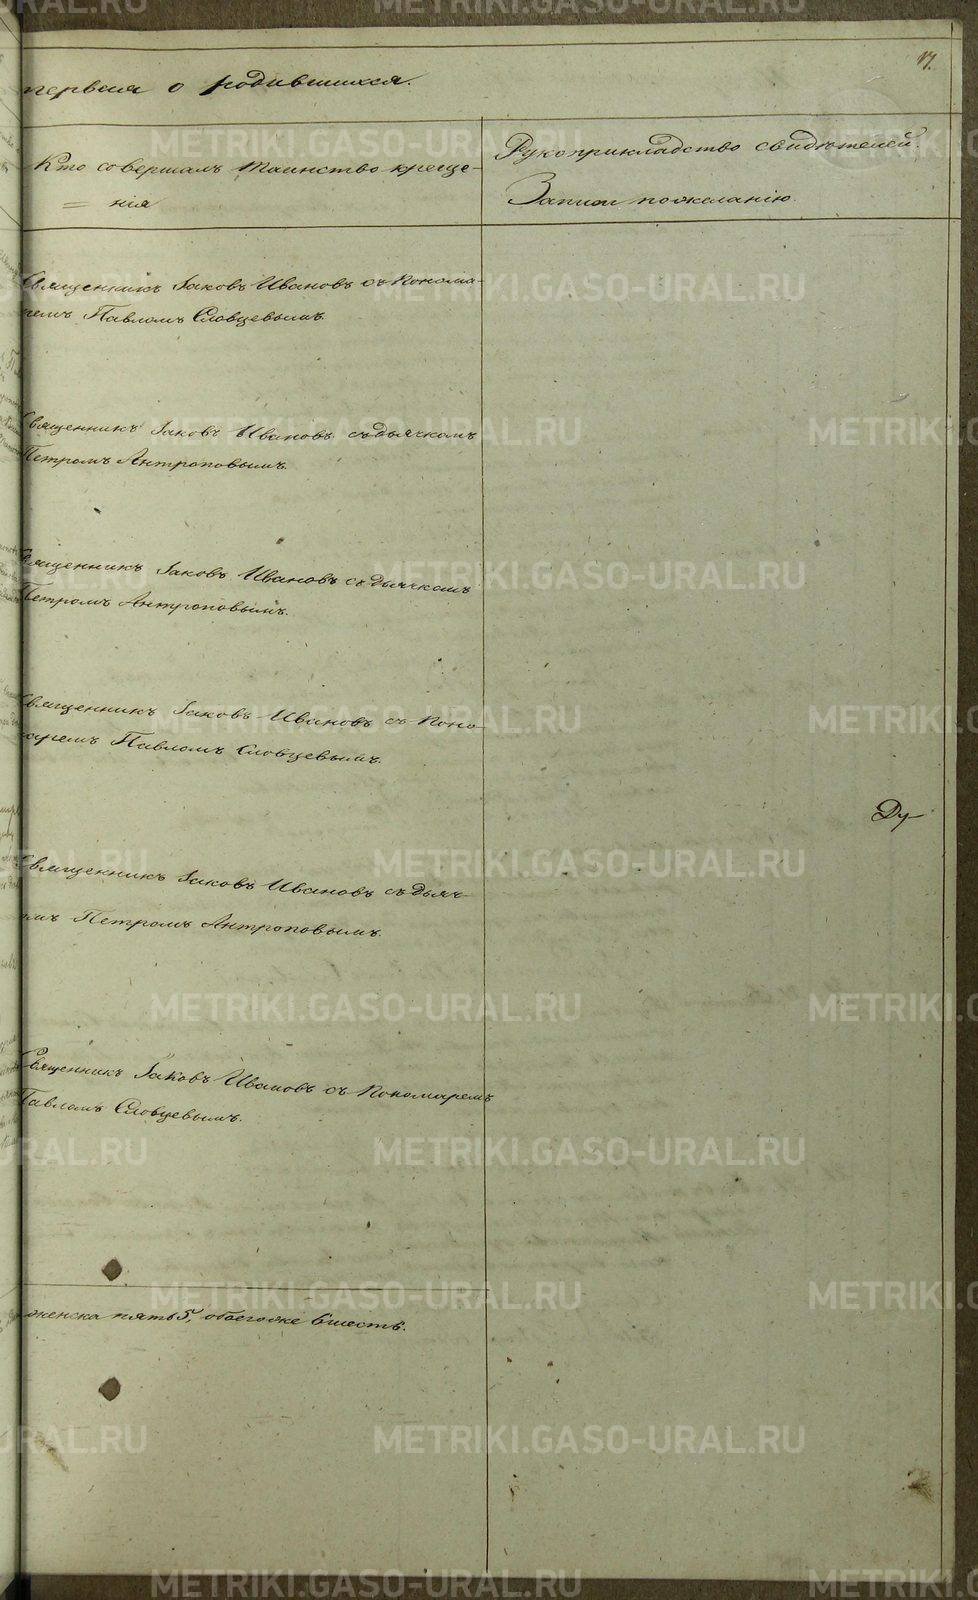 17.
первая о родившихся.
Кто совершалъ таинство креще-
нія
Рукоприкладство свидѣтелей.
Записи по желанію.
Священникъ Іаковъ Ивановъ съ Понома-
ремъ Павломъ Словцевымъ.
Священникъ Іаковъ Ивановъ съ дьячкомъ
Петромъ Антроповымъ.
Священникъ Іаковъ Ивановъ съ дьячкомъ
Петромъ Антроповымъ.
Священникъ Іаковъ Ивановъ съ Поно-
аремъ Павломъ Словцевымъ.
Ду
Священникъ Іаковъ Ивановъ съ дьяч-
мъ Петромъ Антроповымъ.
Священникъ Іаковъ Ивановъ съ Пономаремъ
Павломъ Словцевымъ.
женска пять 5, обоего же 6 шесть.
METRIKI.GASO-URAL.RU